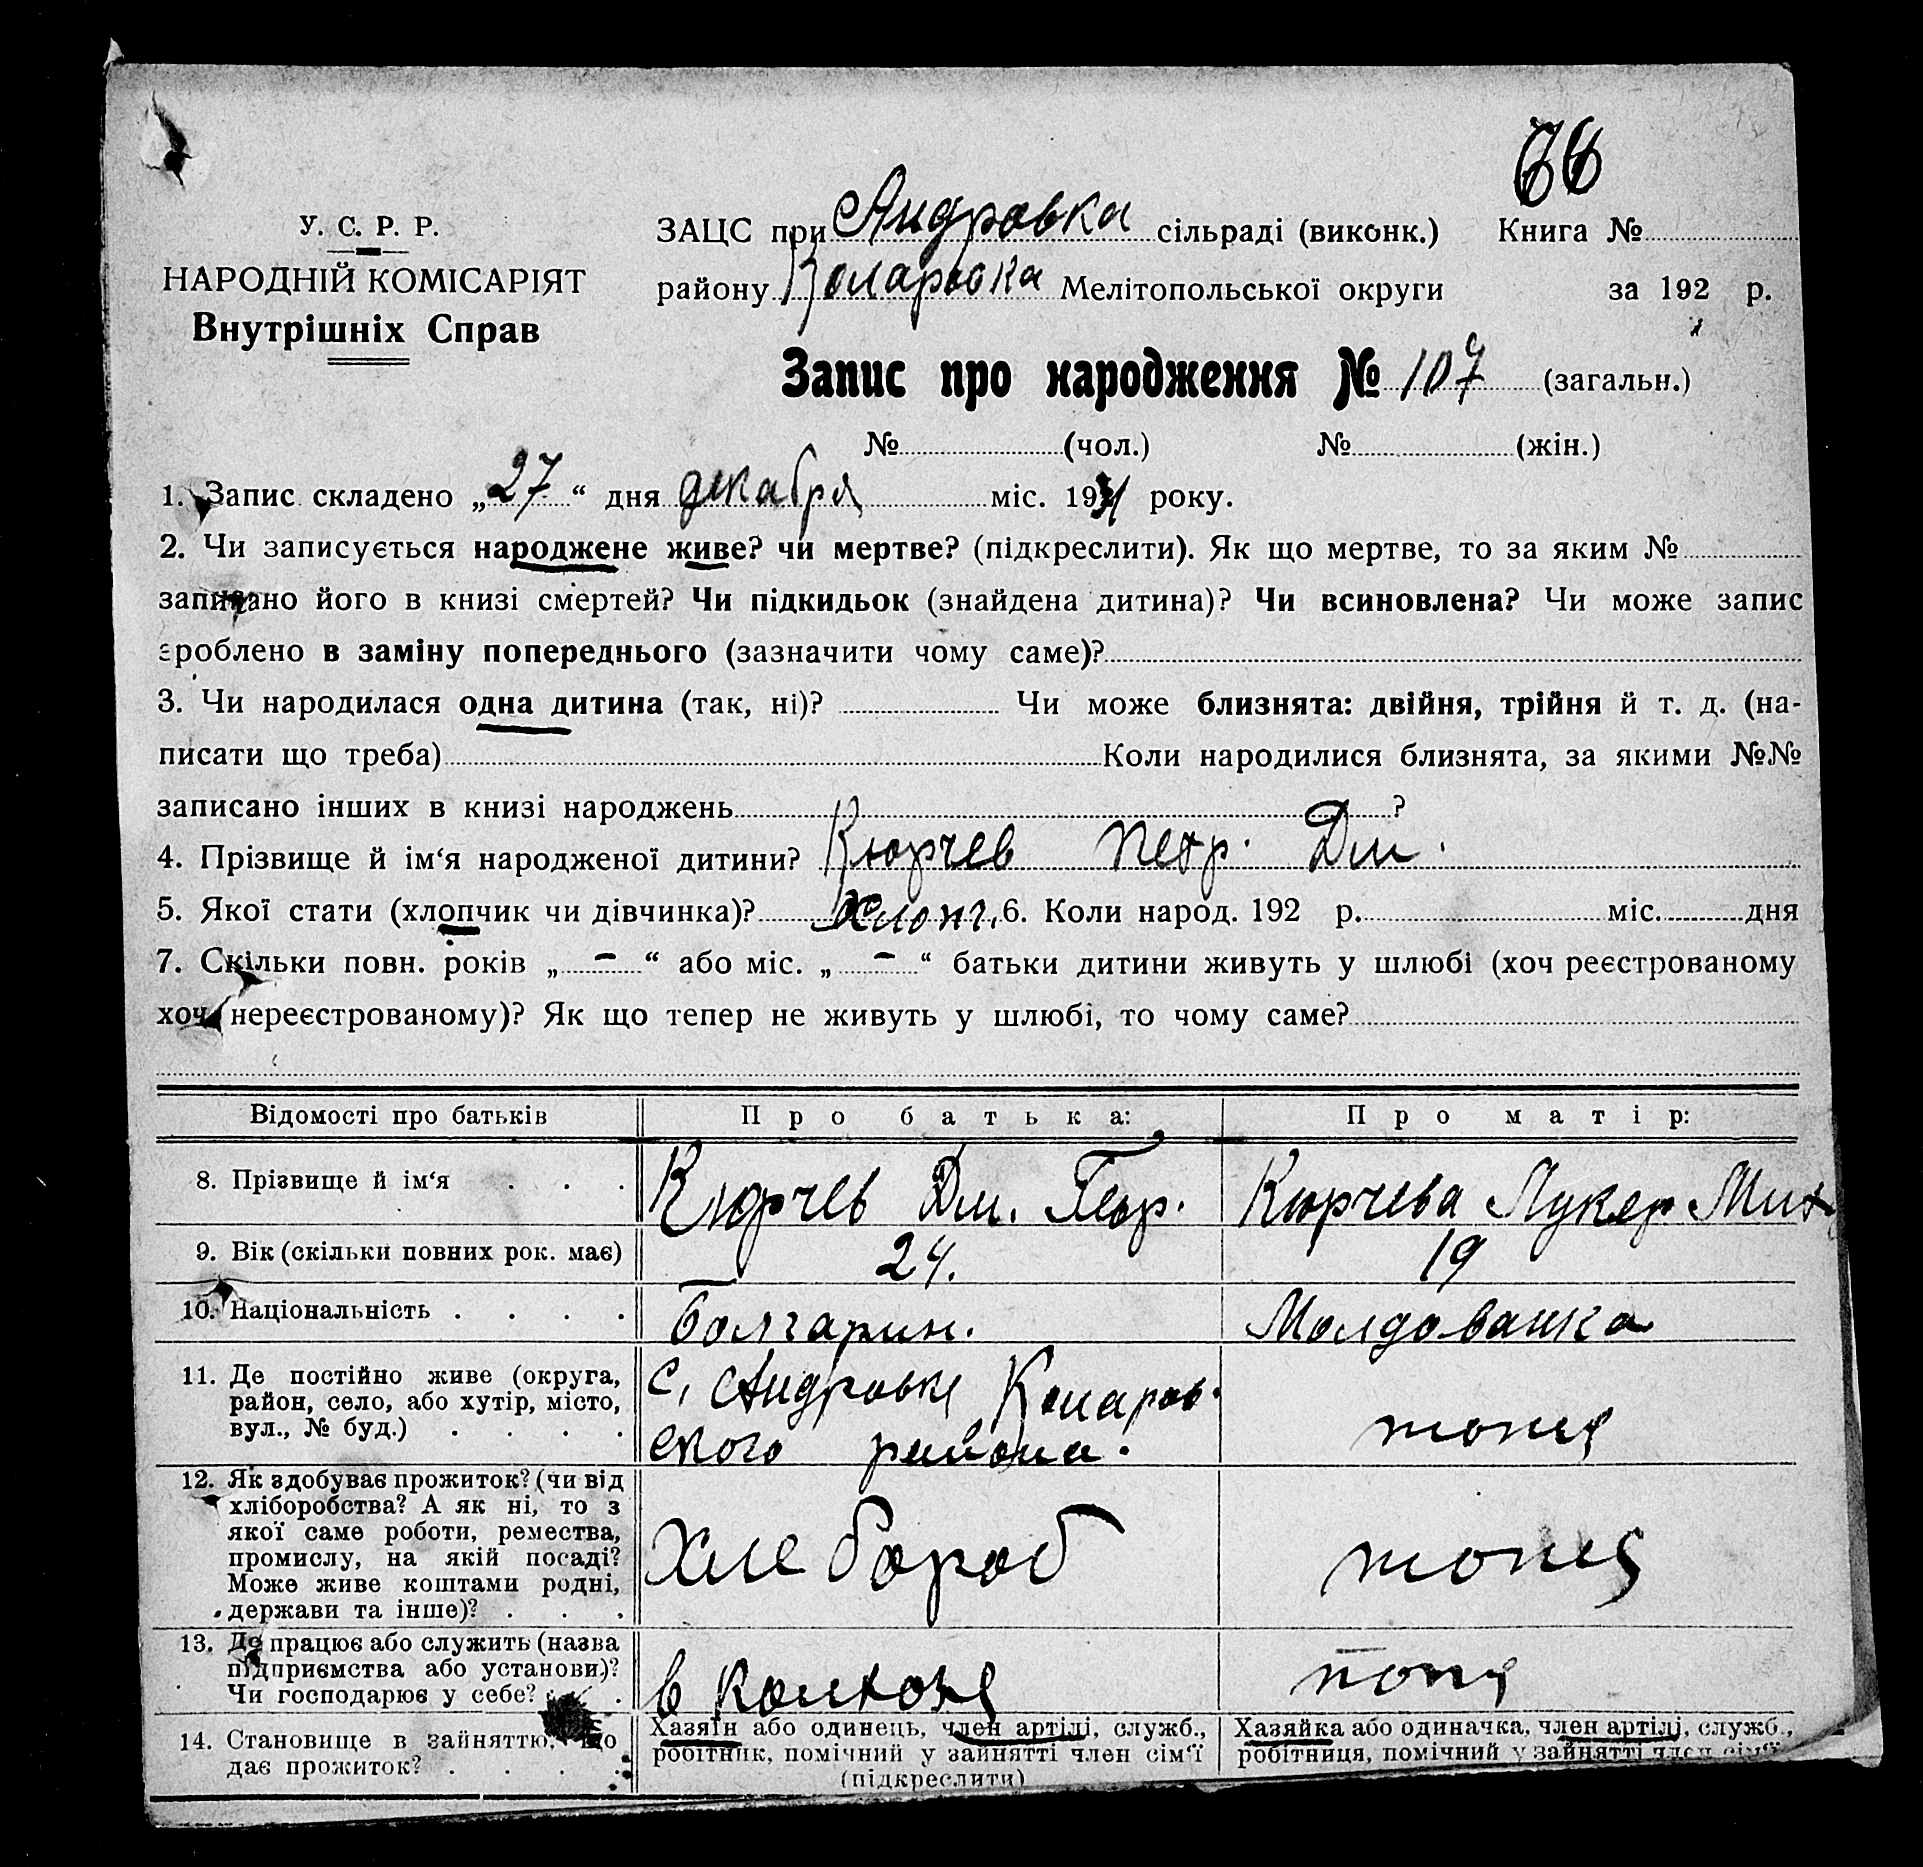 66
У. С. Р. Р.
НАРОДНІЙ КОМІСАРІЯТ
Внутрішніх Справ
ЗАЦС при Андровка сільраді (виконк.) Книга №
району Коларовка Мелітопольської округи за 192 р.
Запис про народження № 107 (загальн.)
№ (чол.) № (жін.)
1. Запис складено „27“ дня декабря міс. 1931 року.
2. Чи записується народжене живе? чи мертве? (підкреслити). Як що мертве, то за яким №
записано його в книзі смертей? Чи підкидьок (знайдена дитина)? Чи всиновлена? Чи може запис
зроблено в заміну попереднього (зазначити чому саме)?
3. Чи народилася одна дитина (так, ні)? Чи може близнята: двійня, трійня й т. д. (на-
писати що треба) Коли народилися близнята, за якими №№
записано інших в книзі народжень ?
4. Прізвище й ім‘я народженої дитини? Кюрчев Петр. Дм.
5. Якої стати (хлопчик чи дівчинка)? Хлопч. 6. Коли народ. 192 р. міс. дня
7. Скільки повн. років „ – “ або міс. „ – “ батьки дитини живуть у шлюбі (хоч реєстрованому
хоч нереєстрованому)? Як що тепер не живуть у шлюбі, то чому саме?
Відомості про батьків Про батька: Про матір:
8. Прізвище й ім‘я . . . Кюрчев Дм. Геор. Кюрчева Лукер Мих
9. Вік (скільки повних рок. має) 24. 19
10. Національність . . . . Болгарин. Молдованка
11. Де постійно живе (округа,
район, село, або хутір, місто,
вул., № буд.) . . . .
с. Андровка Коларов-
ского района.
тоже
12. Як здобуває прожиток? (чи від
хліборобства? А як ні, то з
якої саме роботи, ремества,
промислу, на якій посаді?
Може живе коштами родні,
держави та інше)? . . .
Хлебороб
тоже
13. Де працює або служить (назва
підприємства або установи)?
Чи господарює у себе? .
в колхозе
тоже
14. Становище в зайняттю, що
дає прожиток? . . . .
Хазяїн або одинець, член артілі, служб.,
робітник, помічний у зайнятті член сім‘ї
(підкреслити)
Хазяйка або одиначка, член артілі, служб.,
робітниця, помічний у зайнятті член сім‘ї